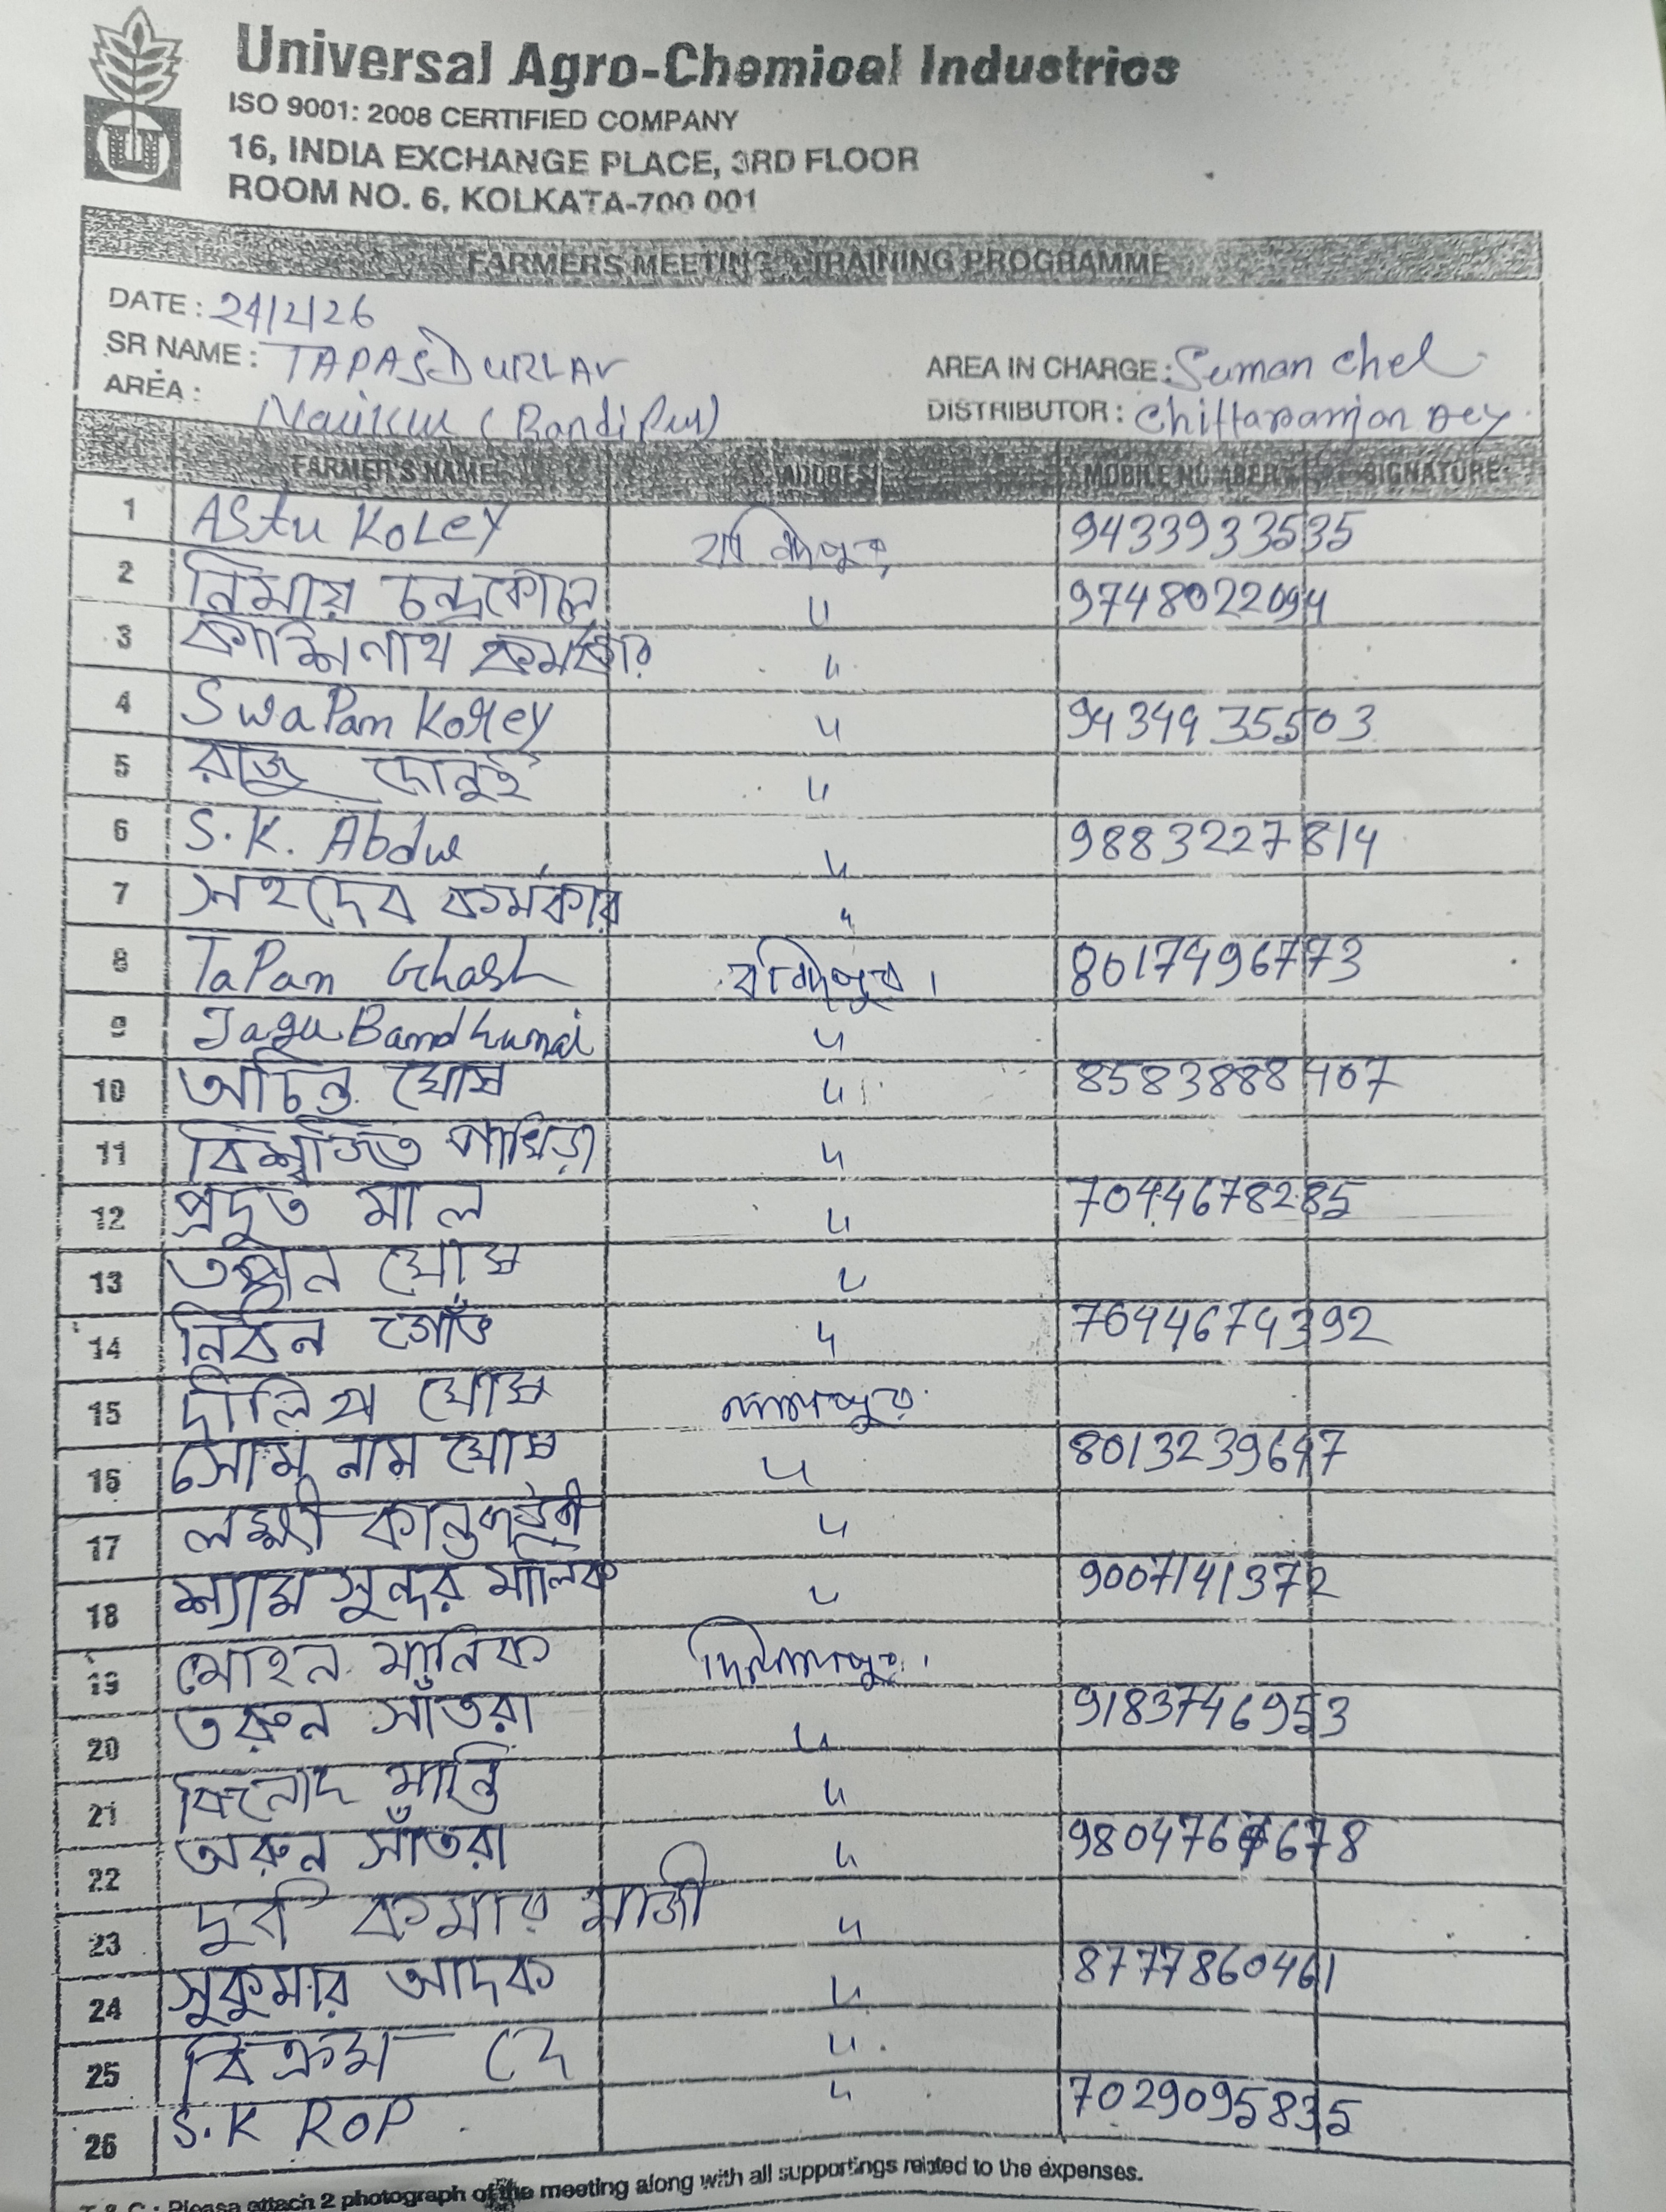 Universal Agro-Chemical Industries
ISO 9001: 2008 CERTIFIED COMPANY
16, INDIA EXCHANGE PLACE, 3RD FLOOR
ROOM NO. 6, KOLKATA-700 001
FARMERS MEETING TRAINING PROGRAMME
DATE : 24/2/26
SR NAME : TAPAS
AREA IN CHARGE : Suman Chel
AREA :
DISTRIBUTOR : Chittaranjan Dey
FARMER'S NAME ADDRESS MOBILE NUMBER SIGNATURE
1 Astu Koley 9433933535
2 নিমায় চন্দ্র কোলে " 9748022094
3 কাশিনাথ কর্মকার "
4 Swapan Koley " 9434935503
5 রাজু "
6 S.K. Abdul " 9883227814
7 সহদেব কর্মকার "
8 Tapan Ghosh বন্দিপুর । 8017496773
9 "
10 অচিন্ত ঘোষ " 8583888407
11 বিশ্বজিত পাখিরা "
12 প্রদুত মাল " 7044678285
13 তপন ঘোষ "
14 " 7044674392
15 দীলিপ ঘোষ
16 সোম নাথ ঘোষ " 8013239647
17 লক্ষ্মী কান্ত "
18 শ্যাম সুন্দর মালিক " 9007141372
19 মোহন মালিক
20 তরুন সাঁতরা " 9183746953
21 বিনোদ মান্তি "
22 অরুন সাঁতরা "
23 কুমার মাজী "
24 সুকুমার আদক " 8777860461
25 বিক্রম দে "
26 S.K ROP " 7029095835
T & C : Please attach 2 photograph of the meeting along with all supportings related to the expenses.